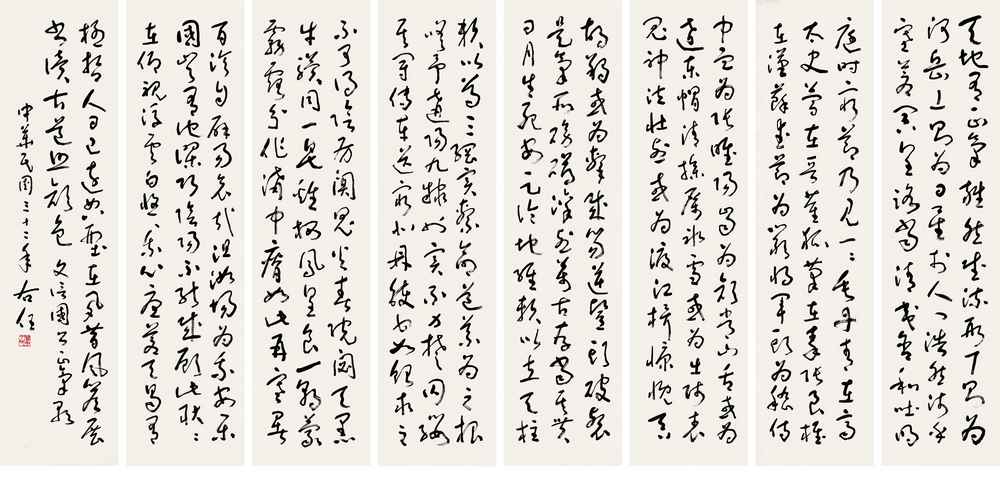 天地有正氣雜然賦流形下則為
河嶽上則為日星於人曰浩然沛乎
塞蒼冥皇路當清夷含和吐明
庭時窮節乃見一一垂丹青在齊
太史簡在晉董狐筆在秦張良椎
在漢蘇武節為嚴將軍頭為嵇侍
中血為張睢陽齒為顏常山舌或為
遼東帽清操厲冰雪或為出師表
鬼神泣壯烈或為渡江楫慷慨吞
胡羯或為擊賊笏逆豎頭破裂
是氣所磅礴凜烈萬古存當其貫
日月生死安足論地維賴以立天柱
賴以尊三綱實繫命道義為之根
嗟予遘陽九隸也實不力楚囚纓
其冠傳車送窮北鼎鑊甘如飴求之
不可得陰房闃鬼火春院閟天黑
牛驥同一皂雞棲鳳凰食一朝蒙
霧露分作溝中瘠如此再寒暑
百沴自辟易哀哉沮洳場為我安樂
國豈有他謬巧陰陽不能賊顧此耿耿
在仰視浮雲白悠悠我心憂蒼天曷有
極哲人日已遠典型在夙昔風簷展
書讀古道照顏色 文信國公正氣歌
中華民國三十三年 右任